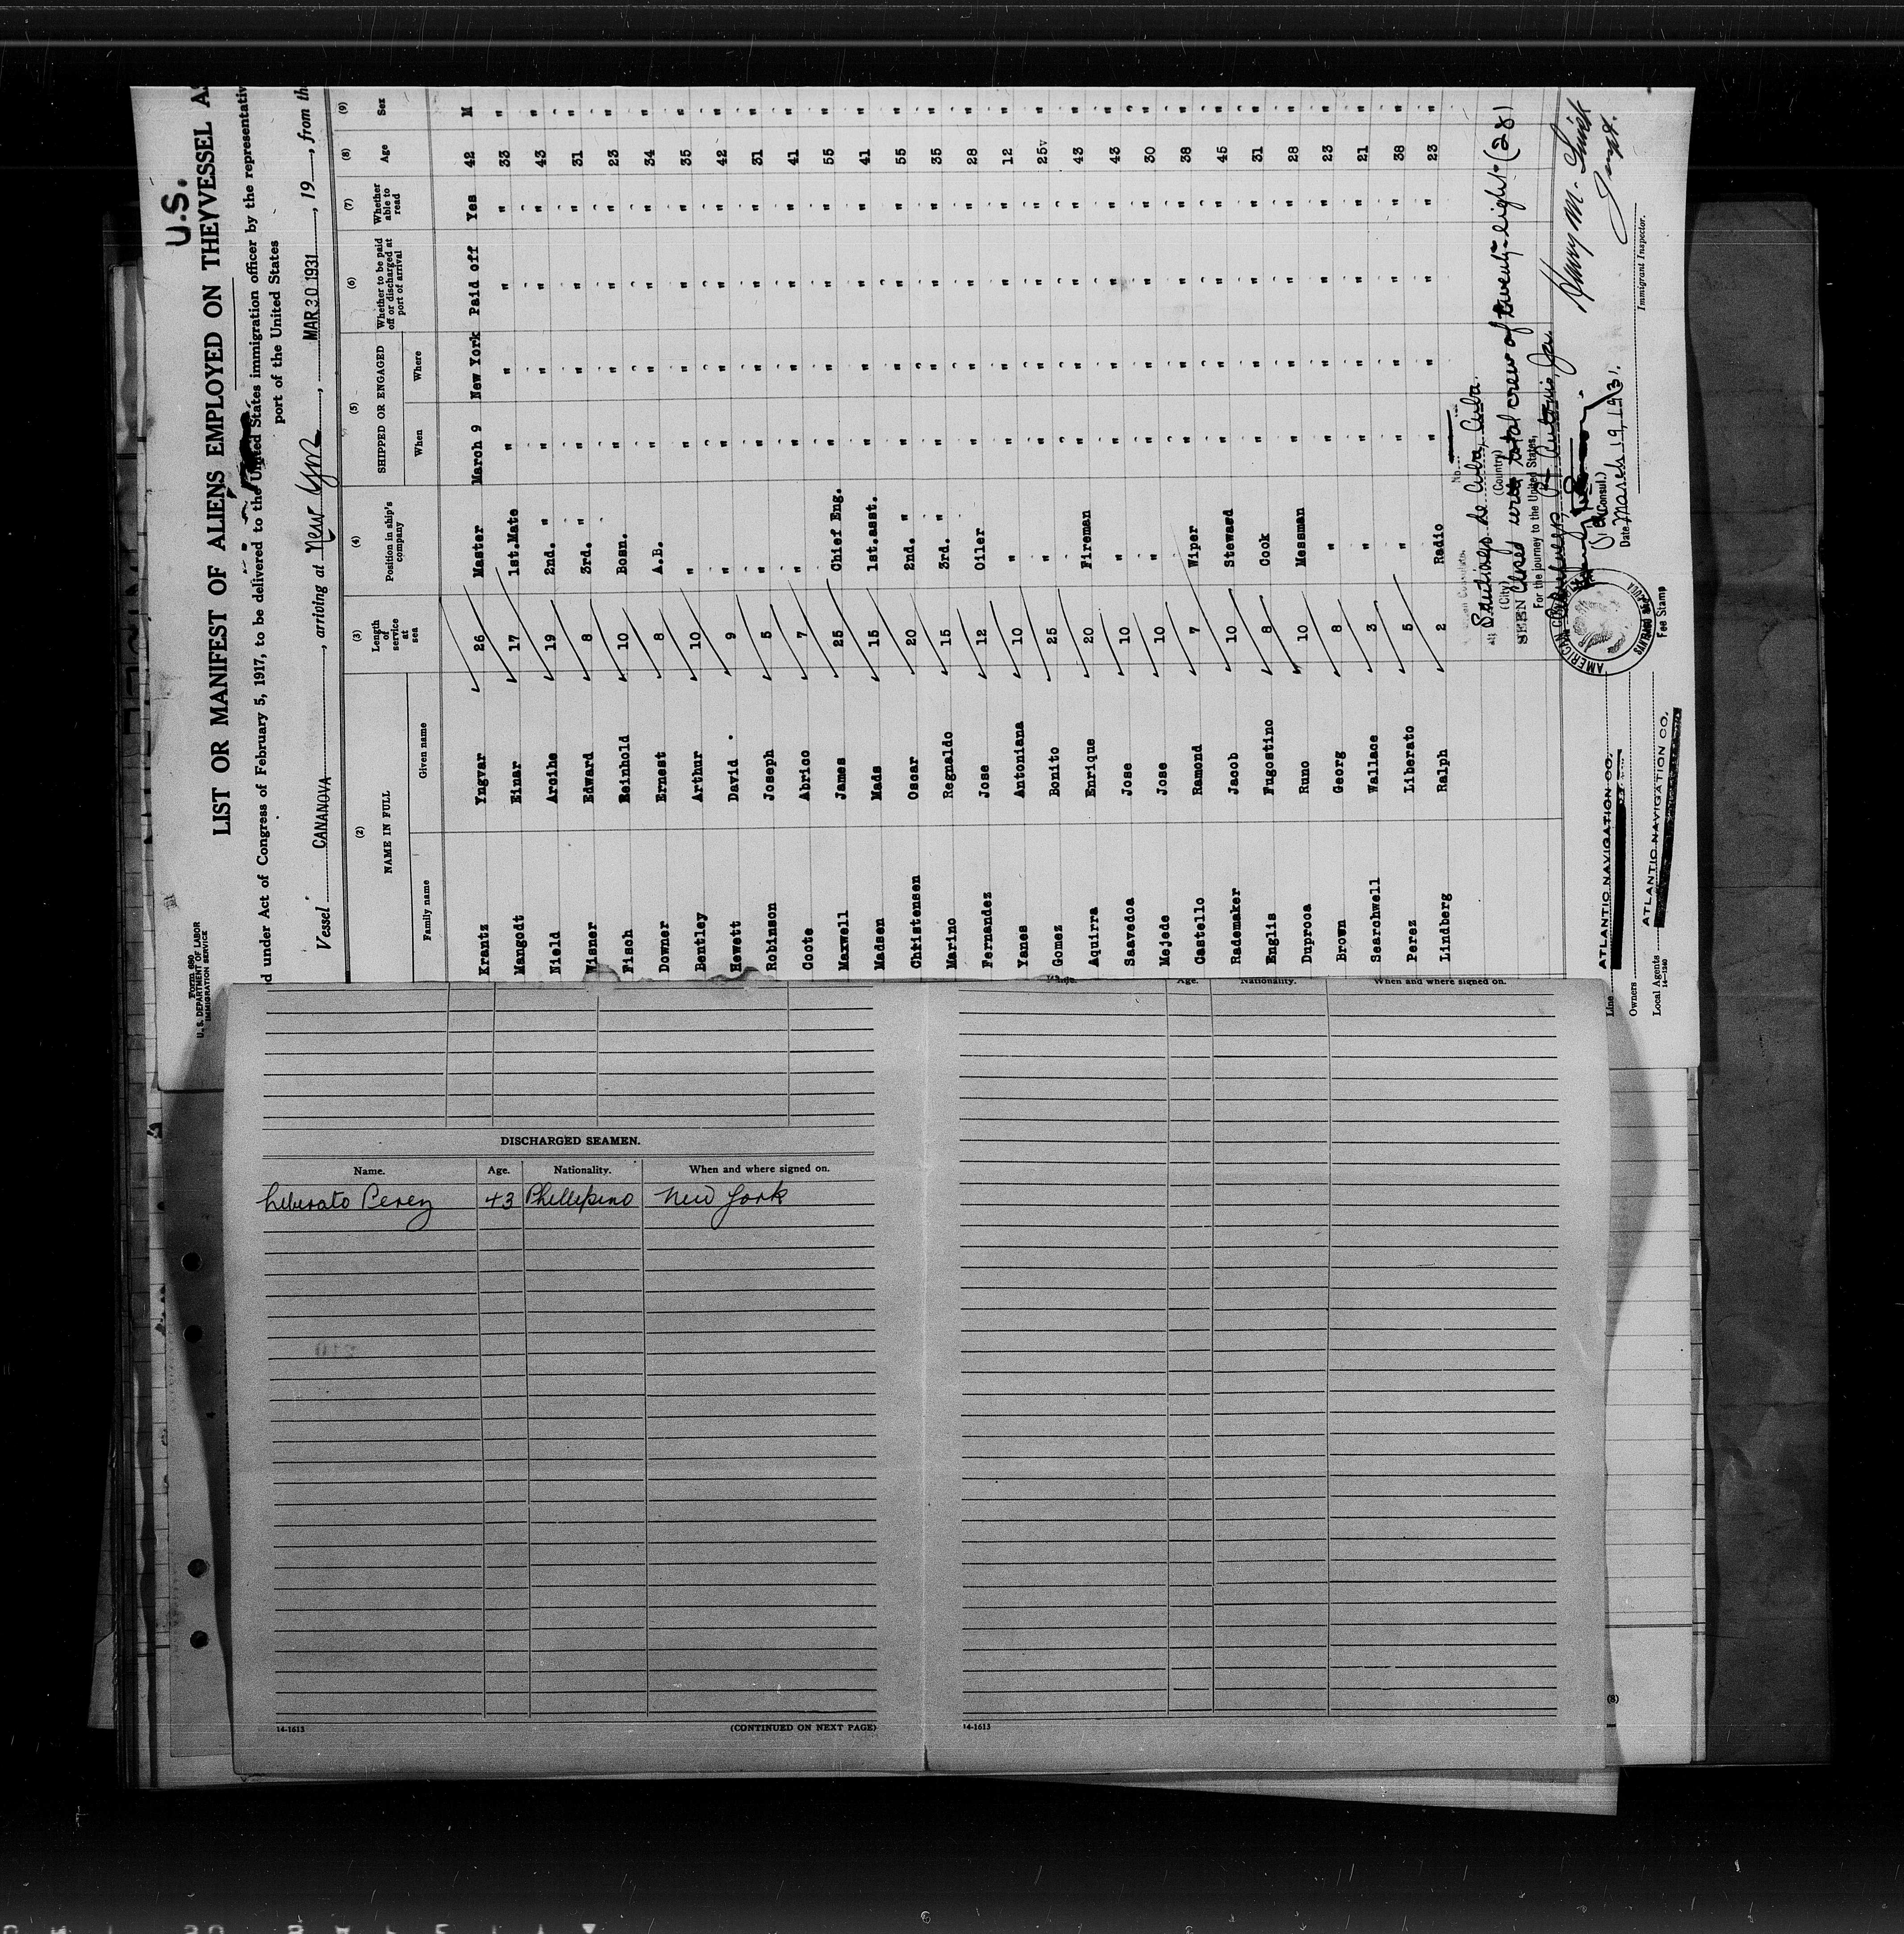 U.S.
Form 680
U. S. DEPARTMENT OF LABOR
IMMIGRATION SERVICE
LIST OR MANIFEST OF ALIENS EMPLOYED ON THE VESSEL AS
d under Act of Congress of February 5, 1917, to be delivered to the United States immigration officer by the representativ
port of the United States
Vessel CANANOVA, arriving at New York, MAR 30 1931, 19, from th
(2) (3) (4) (5) (6) (7) (8) (9)
NAME IN FULL Length of service at sea Position in ship's company SHIPPED OR ENGAGED Whether to be paid off or discharged at port of arrival Whether able to read Age Sex
Family name Given name When Where
Krantz Yngvar 26 Master March 9 New York Paid off Yes 42 M
Mangodt Einar 17 1st.Mate " " " " 33 "
Nield Arcihe 19 2nd. " " " " " 43 "
Wisner Edward 8 3rd. " " " " " 31 "
Fisch Reinhold 10 Bosn. " " " " 23 "
Downer Ernest 8 A.B. " " " " 34 "
Bentley Arthur 10 " " " " " 35 "
Hewett David . 9 " " " " " 42 "
Robinson Joseph 5 " " " " " 31 "
Coote Abrico 7 " " " " " 41 "
Maxwell James 25 Chief Eng. " " " " 55 "
Madsen Mads 15 1st.asst. " " " " 41 "
Christensen Oscar 20 2nd. " " " " " 55 "
Marino Regnaldo 15 3rd. " " " " " 35 "
Fernandez Jose 12 Oiler " " " " 28 "
Yanes Antoniana 10 " " " " " 12 "
Gomez Bonito 25 " " " " " 25v "
Aquirra Enrique 20 Fireman " " " " 43 "
Saavedoa Jose 10 " " " " " 43 "
Mejede Jose 10 " " " " " 30 "
Castello Ramond 7 Wiper " " " " 38 "
Rademaker Jacob 10 Steward " " " " 45 "
Englis Fugostino 8 Cook " " " " 31 "
Duproca Runo 10 Messman " " " " 28 "
Brown Georg 8 " " " " " 23 "
Searchwell Wallace 3 " " " " " 21 "
Perez Liberato 5 " " " " " 38 "
Lindberg Ralph 2 Radio " " " " 23 "
No.
at Santiago de Cuba, Cuba.
(City) (Country)
SEEN Closed with total crew of twenty-eight (28)
For the journey to the United States,
Antonio, Ja.
(Consul.)
Date March 19, 1931.
AMERICAN
Fee Stamp
Henry M.
Insp.
Immigrant Inspector.
Line ATLANTIC NAVIGATION CO.
Owners
Local Agents ATLANTIC NAVIGATION CO.
14-1240
DISCHARGED SEAMEN.
Name. Age. Nationality. When and where signed on.
Liberato Perez 43 Phillepino New York
14-1613 (CONTINUED ON NEXT PAGE)
Age. Nationality. When and where signed on.
14-1613
(8)